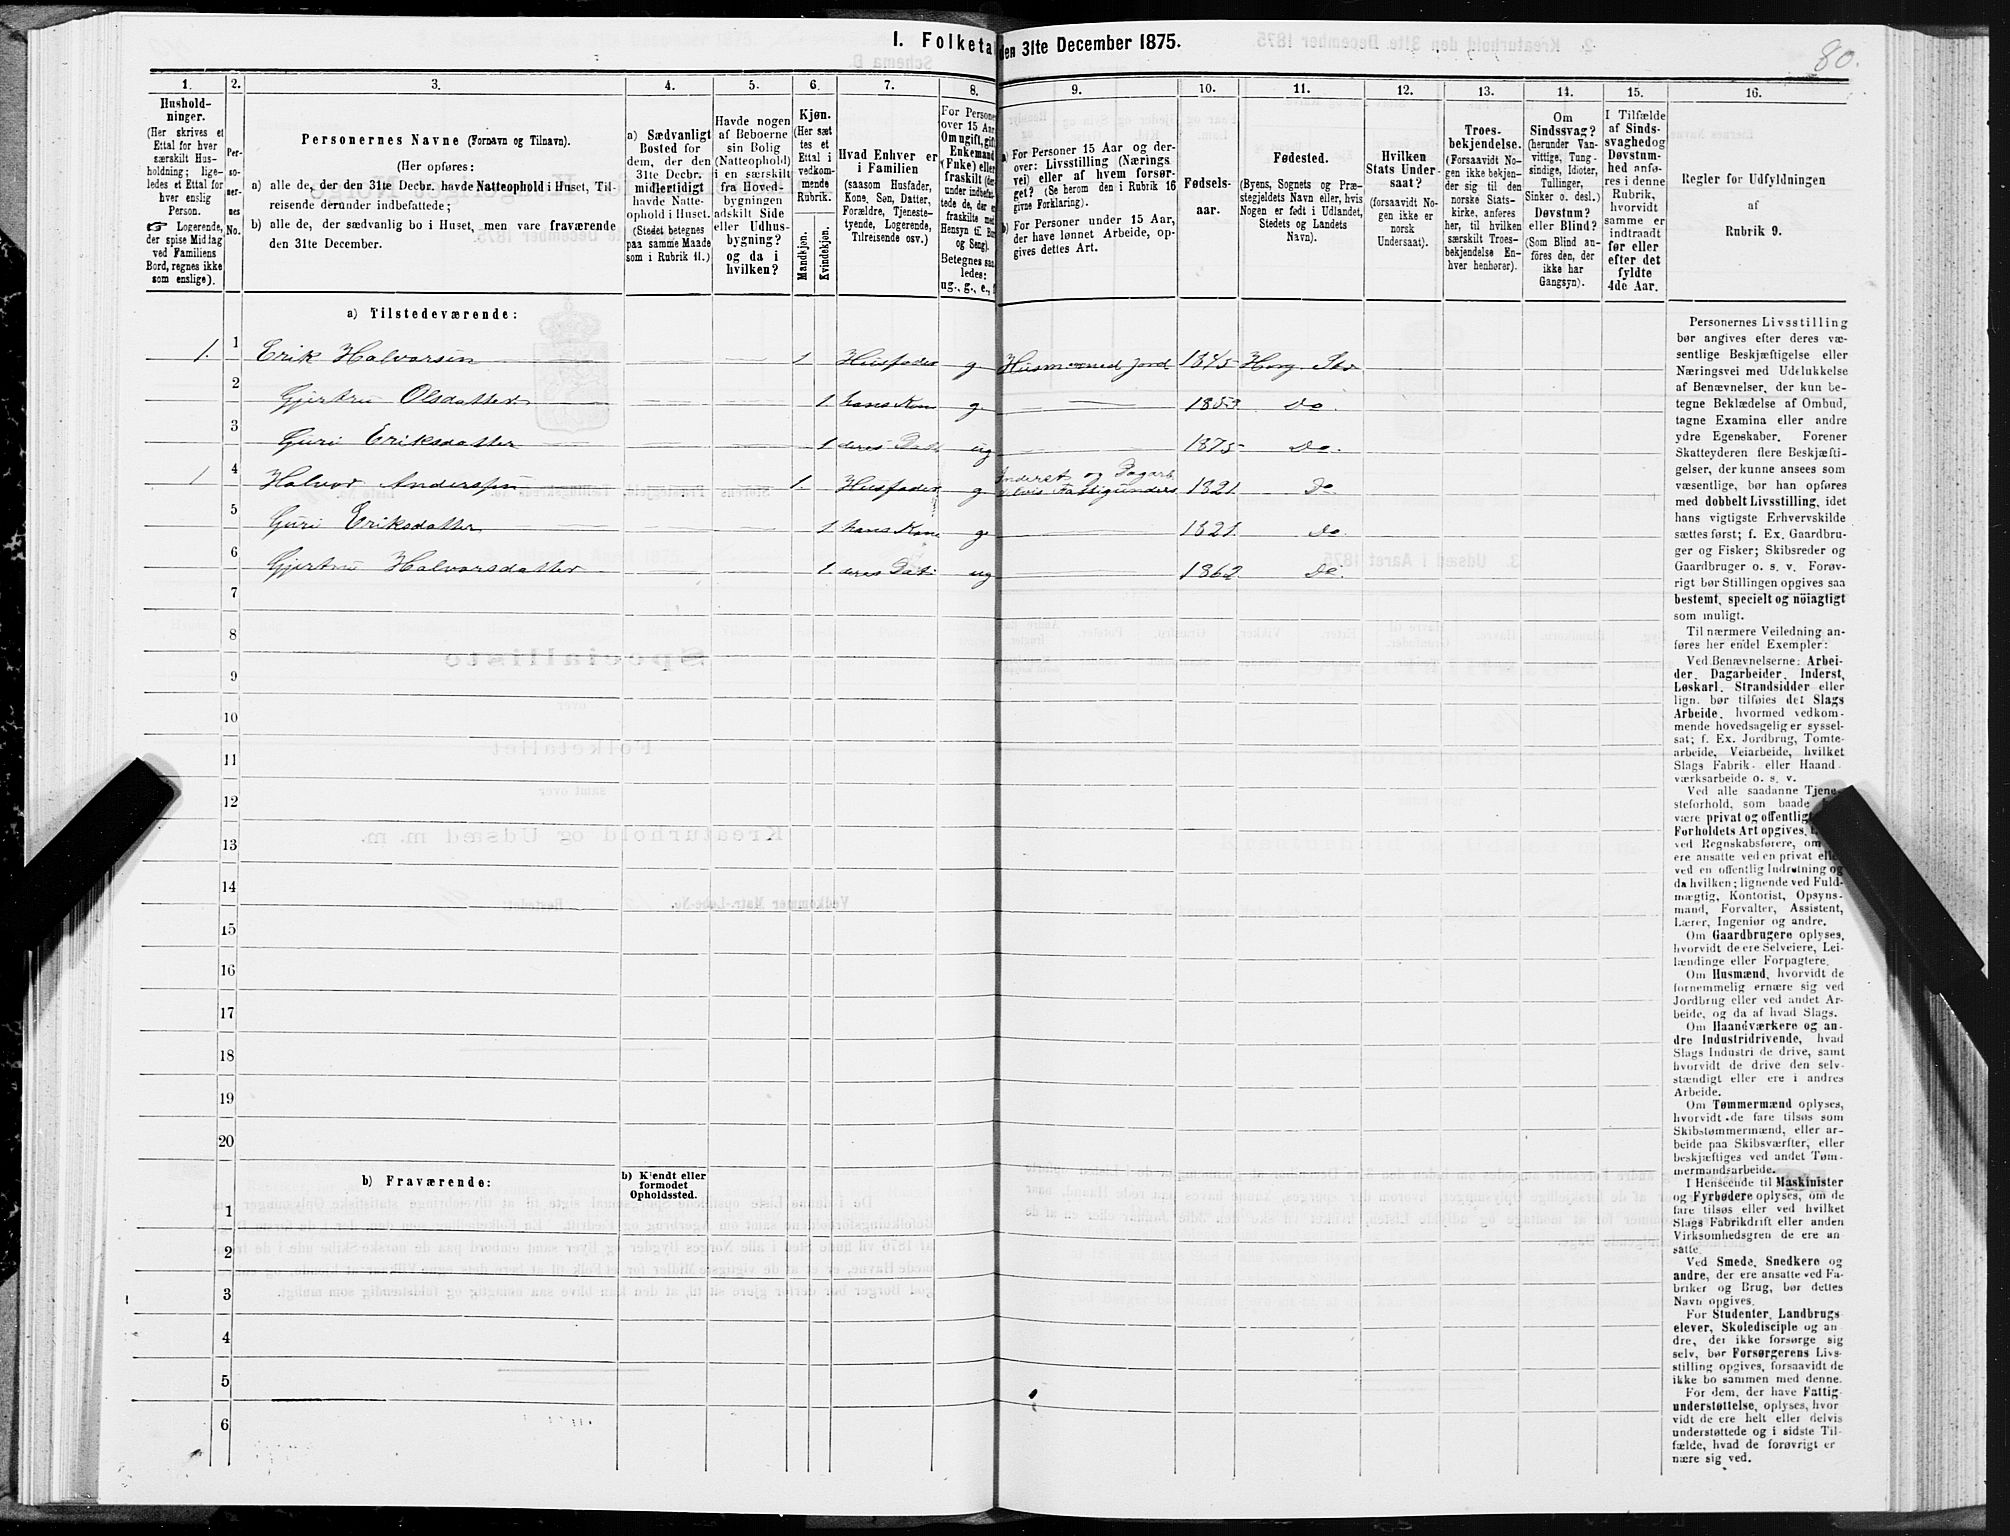 I. Folketal den 31te December 1875.
80.
1. 2. 3. 4. 5. 6. 7. 8. 9. 10. 11. 12. 13. 14. 15. 16.
Hushold-
ninger.
(Her skrives et
Ettal for hver
særskilt Hus-
holdning; lige-
ledes et Ettal for
hver enslig
Person.
☞ Logerende,
der spise Middag
ved Familiens
Bord, regnes ikke
som enslige).
Per-
so-
ner-
nes
No.
Personernes Navne (Fornavn og Tilnavn).
(Her opføres:
a) alle de, der den 31te Decbr. havde Natteophold i Huset, Til-
reisende derunder indbefattede;
b) alle de, der sædvanlig bo i Huset, men vare fraværende
den 31te December.
a) Sædvanligt
Bosted for
dem, der den
31te Decbr.
midlertidigt
havde Natte-
ophold i Huset.
(Stedet betegnes
paa samme Maade
som i Rubrik 11.)
Havde nogen
af Beboerne
sin Bolig
(Natteophold)
i en særskilt
fra Hoved-
bygningen
adskilt Side
eller Udhus-
bygning?
og da i
hvilken?
Kjøn.
(Her sæt
tes et
Ettal i
vedkom-
mende
Rubrik.
Mandkjøn.
Kvindekjøn.
Hvad Enhver er
i Familien
(saasom Husfader,
Kone, Søn, Datter,
Forældre, Tjeneste-
tyende, Logerende,
Tilreisende osv.)
For Persone
over 15 Aar
Om ugift, gift
Enkemand
(Enke) eller
fraskilt (der
under indbefat-
tede de, der er
fraskilte med
Hensyn til Bo
og Seng).
Betegnes saa
ledes:
ug., g., e., f
a) For Personer 15 Aar og der-
over: Livsstilling (Nærings
vei) eller af hvem forsør-
get? (Se herom den i Rubrik 16
givne Forklaring).
b) For Personer under 15 Aar,
der have lønnet Arbeide, op-
gives dettes Art.
Fødsels-
aar.
Fødested.
(Byens, Sognets og Præ-
stegjeldets Navn eller, hvis
Nogen er født i Udlandet,
Stedets og Landets
Navn).
Hvilken
Stats Under-
saat?
(forsaavidt No-
gen ikke er
norsk
Undersaat).
Troes-
bekjendelse.
(Forsaavidt No-
gen ikke bekjen-
der sig til den
norske Stats-
kirke, anføres
her, til hvilken
særskilt Troes-
bekjendelse En-
hver henhører).
Om
Sindssvag?
(herunder Van-
vittige, Tung-
sindige, Idioter,
Tullinger,
Sinker o. desl.)
Døvstum?
eller Blind?
(Som Blind an-
føres den, der
ikke har
Gangsyn).
I Tilfælde
af Sinds-
svaghed og
Døvstum-
hed anfø-
res i denne
Rubrik,
hvorvidt
samme er
indtraadt
før eller
efter det
fyldte
4de Aar.
Regler for Udfyldningen
af
Rubrik 9.
a) Tilstedeværende:
1. 1 Erik Halvorsen 1 Husfader g Husm. med Jord 1845 Horg Ps
2 Gjertru Olsdatter 1 hans Kone g 1853 Do.
3 Guri Eriksdatter 1 deres Datt ug 1875 Do.
1 4 Halvor Anderssen 1. Husfader g Inderst og Dagarb. delvis Fattigunders 1821 Do
5 Guri Eriksdatter 1 hans Kone g 1821 Do
6 Gjertru Halvorsdatter 1 deres Dat ug 1862 Do.
7
8
9
10
11
12
13
14
15
16
17
18
19
20
b) Fraværende:
b) Kjendt eller
formodet
Opholdssted.
1
2
3
4
5
6
Personernes Livsstilling
bør angives efter deres væ-
sentlige Beskjæftigelse eller
Næringsvei med Udelukkelse
af Benævnelser, der kun be-
tegne Beklædelse af Ombud,
tagne Examina eller andre
ydre Egenskaber. Forener
Skatteyderen flere Beskjæfti-
gelser, der kunne ansees som
væsentlige, bør han opføres
med dobbelt Livsstilling, idet
hans vigtigste Erhvervskilde
sættes først; f. Ex. Gaardbru-
ger og Fisker; Skibsreder og
Gaardbruger o. s. v. Forøv-
rigt bør Stillingen opgives saa
bestemt, specielt og nöiagtigt
som muligt.
Til nærmere Veiledning an-
føres her endel Exempler:
Ved Benævnelserne: Arbei-
der, Dagarbeider, Inderst,
Løskarl, Strandsidder eller
lign. bør tilføies det Slags
Arbeide, hvormed vedkom-
mende hovedsagelig er syssel-
sat; f. Ex. Jordbrug, Tomte-
arbeide, Veiarbeide, hvilket
Slags Fabrik- eller Haand-
værksarbeide o. s. v.
Ved alle saadanne Tjene-
steforhold, som baade
være privat og offentlig
Forholdets Art opgives,
ved Regnskabsførere, om
ere ansatte ved en privat elle
ved en offentlig Indretning og
da hvilken; lignende ved Fuld-
mægtig, Kontorist, Opsyns-
mand, Forvalter, Assistent,
Lærer, Ingeniør og andre.
Om Gaardbrugere oplyses,
hvorvidt de ere Selveiere, Lei-
lændinge eller Forpagtere.
Om Husmænd, hvorvidt de
fornemmelig ernære sig ved
Jordbrug eller ved andet Ar-
beide, og da af hvad Slags.
Om Haandværkere og an-
dre Industridrivende, hvad
Slags Industri de drive, samt
hvorvidt de drive den selv-
stændigt eller ere i andres
Arbeide.
Om Tømmermænd oplyses,
hvorvidt de fare tilsøs som
Skibstømmermænd, eller ar-
beide paa Skibsværfter, eller
beskjæftiges ved andet Tøm-
mermandsarbeide.
I Henseende til Maskinister
og Fyrbødere oplyses, om de
fare tilsøs eller ved hvilket
Slags Fabrikdrift eller anden
Virksomhedsgren de ere an
satte.
Ved Smede, Snedkere og
andre, der ere ansatte ved Fa-
briker og Brug, bør dettes
Navn opgives.
For Studenter, Landbrugs-
elever, Skoledisciple og an
dre, der ikke forsørge sig
selv, bør Forsørgerens Livs-
stilling opgives, forsaavidt de
ikke bo sammen med denne.
For dem, der have Fattig-
understøttelse, oplyses, hvor
vidt de ere helt eller delvis
understøttede og i sidste Til-
fælde, hvad de forøvrigt er
nære sig ved.